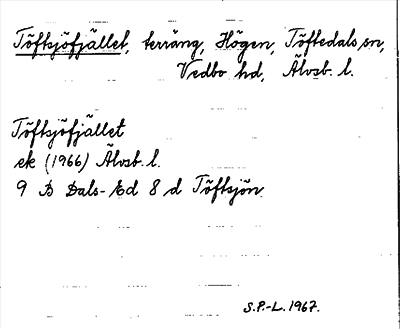 Töftsjöfjället, terräng, Högen, Töftedals sn,
Vedbo hd, Älvsb. l.
Töftsjöfjället
ek (1966) Älvsb. l.
9 B Dals-Ed 8 d Töftsjön
S.P.-L. 1967.